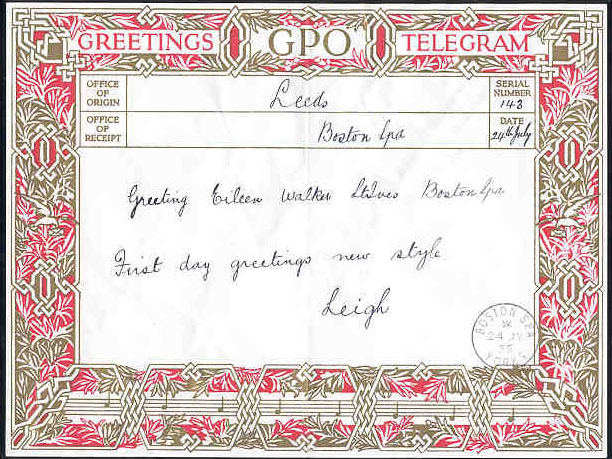 GREETINGS GPO TELEGRAM
OFFICE OF ORIGIN Leeds SERIAL NUMBER 143
OFFICE OF RECEIPT Boston Spa DATE 24th July
Greeting Eileen Walker St Ives Boston Spa
First day greetings new style
Leigh
BOSTON SPA
24 JY
YORKS